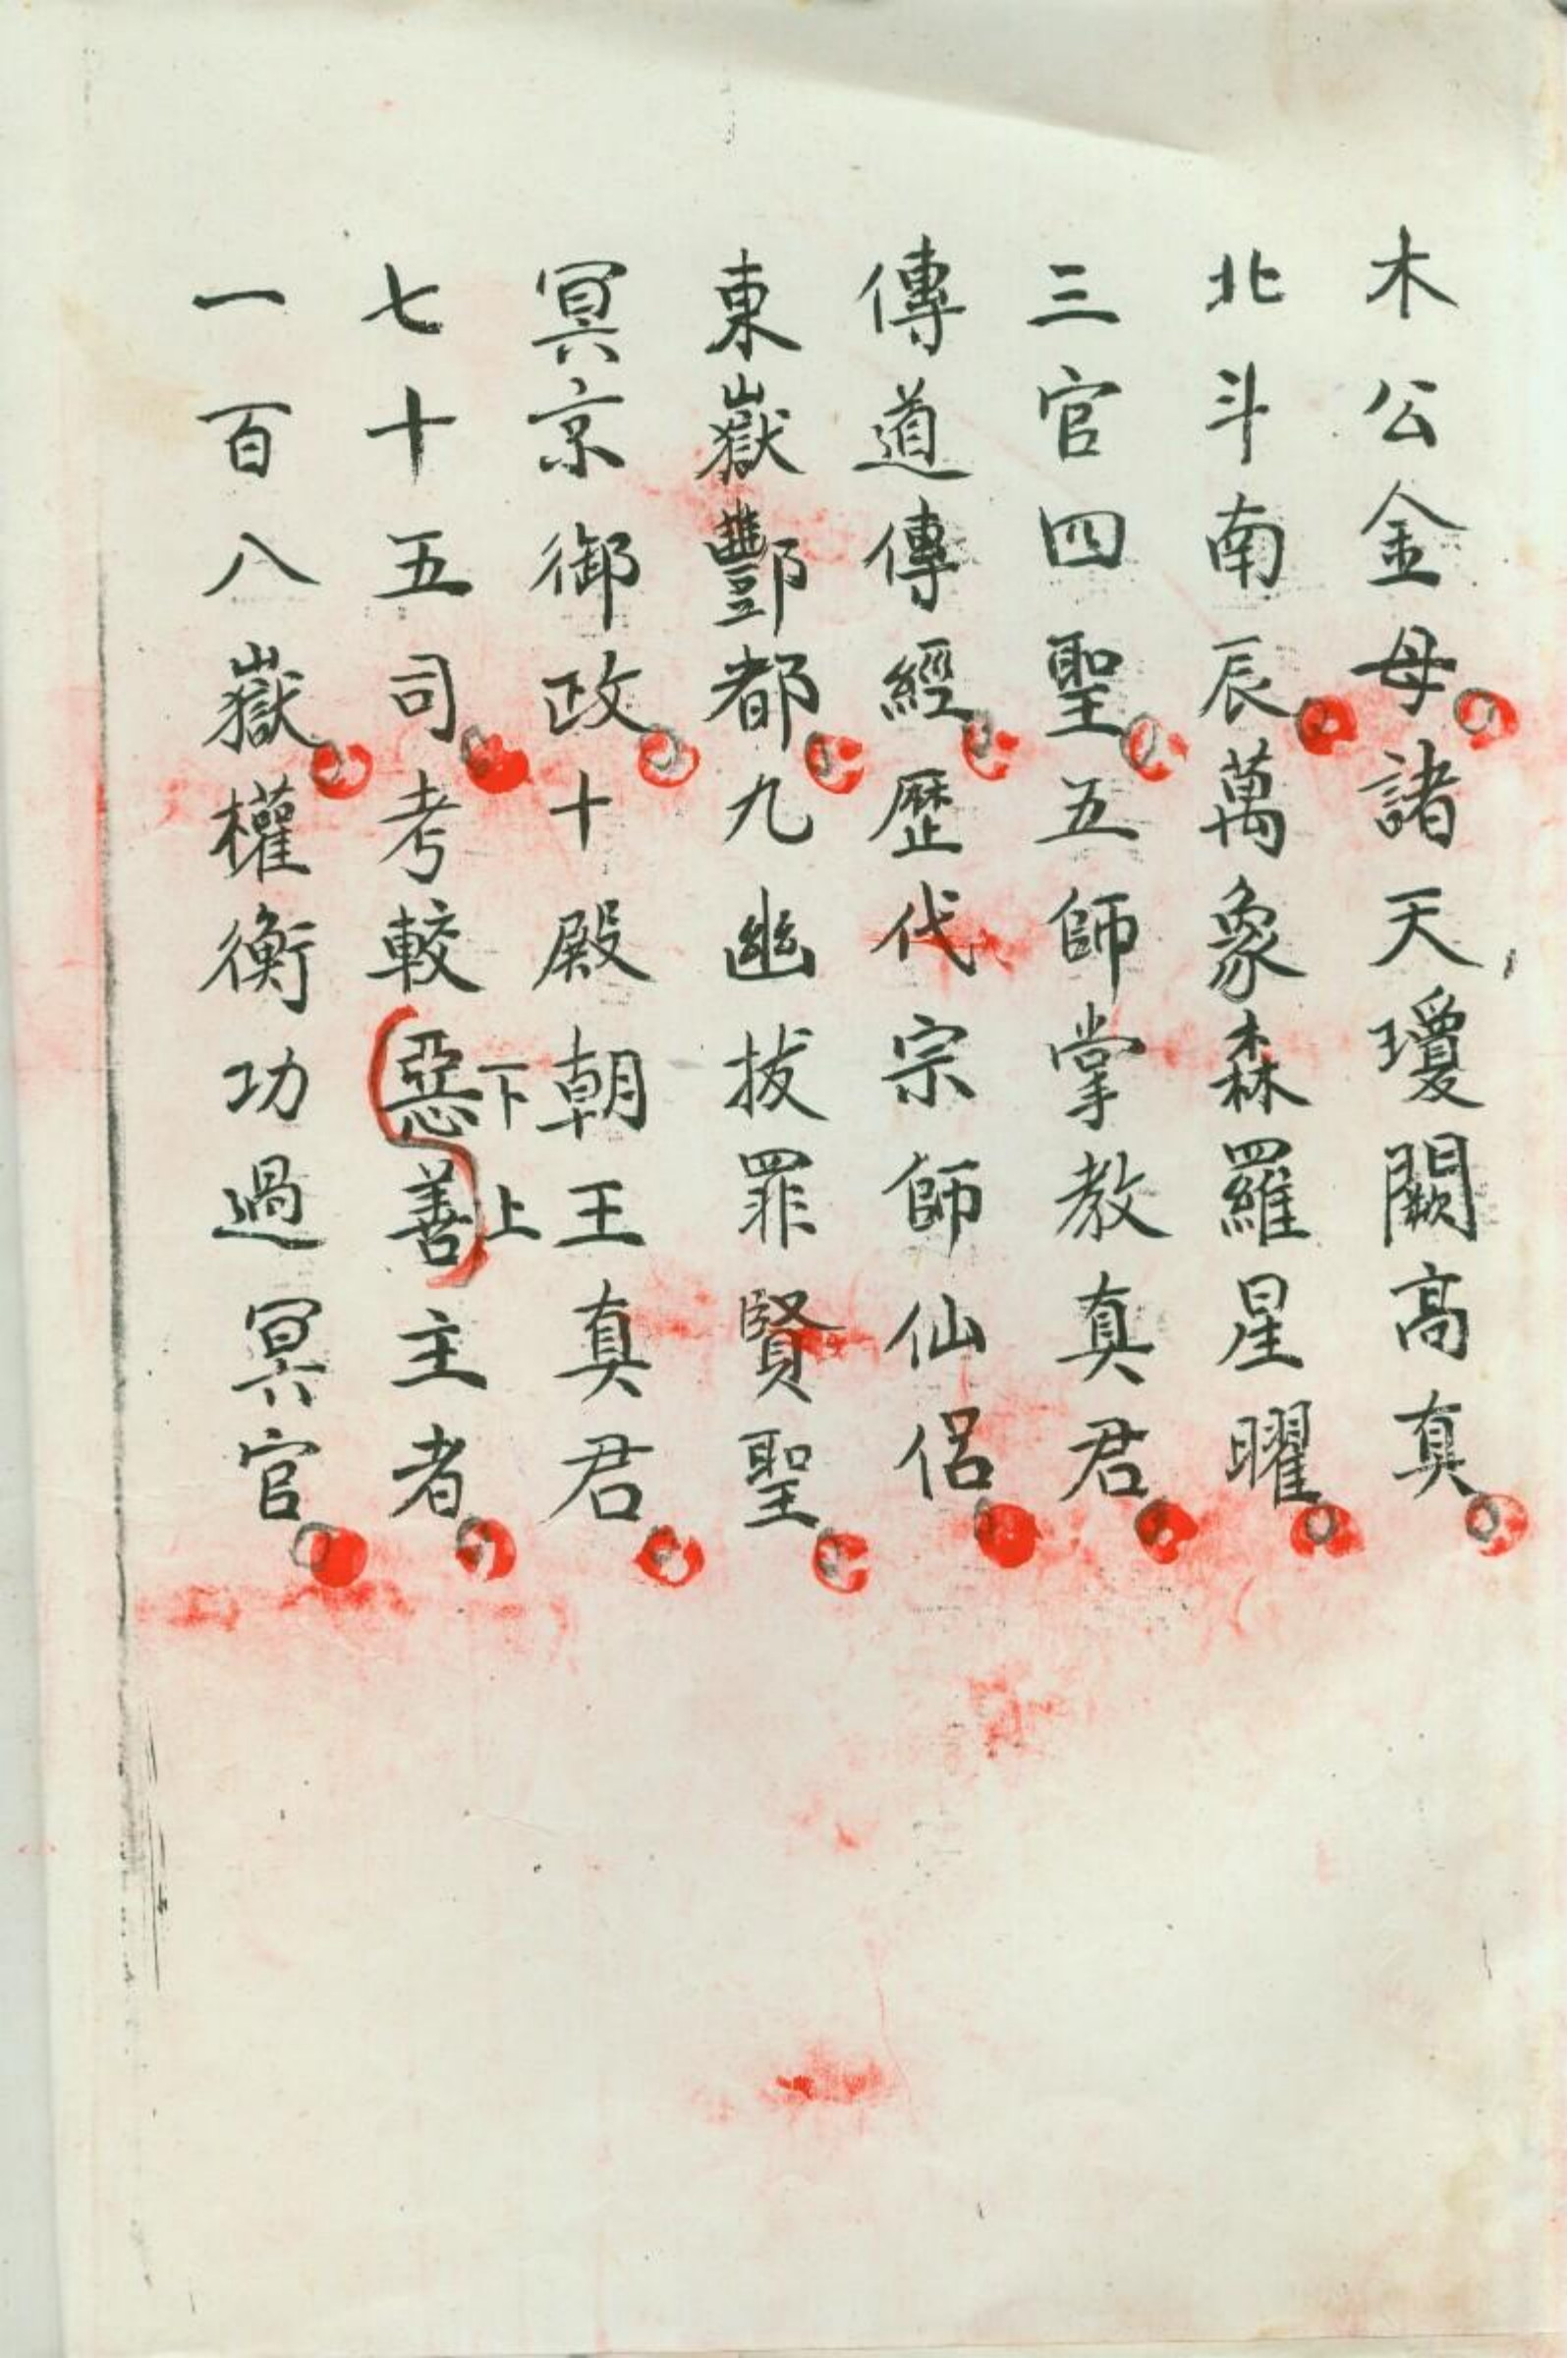 木公金母諸天瓊闕高真
北斗南辰萬象森羅星曜
三官四聖五師掌教真君
傳道傳經歷代宗師仙侶
東嶽酆都九幽拔罪賢聖
冥京御政十殿朝王真君
七十五司考較惡下善上主者
一百八嶽權衡功過冥官